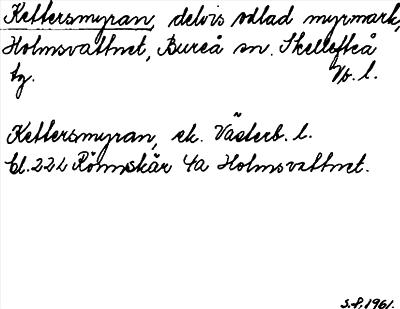 Kettersmyran, delvis odlad myrmark,
Holmsvattnet, Bureå sn. Skellefteå
tg. Vb. l.
Kettersmyran, ek. Västerb. l.
bl. 22L Rönnskär 4a Holmsvattnet.
S.F. 1961.